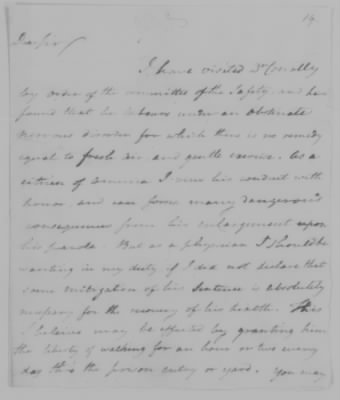 14.
Dear sir
I have visited Dr Conolly
by order of the committee of the Safety, and have
found that he labours under an obstinate
nervous disorder for which there is no remedy
equal to fresh air, and gentle exercise. As a
citizen of America I view his conduct with
horror, and can foresee many dangerous
consequences from his enlargement upon
his parole. But as a physician I should be
wanting in my duty if I did not declare that
some mitigation of his sentence is absolutely
necessary for the recovery of his health. This
I believe may be effected by granting him
the liberty of walking for an hour or two every
day thro the prison entry or yard. You may